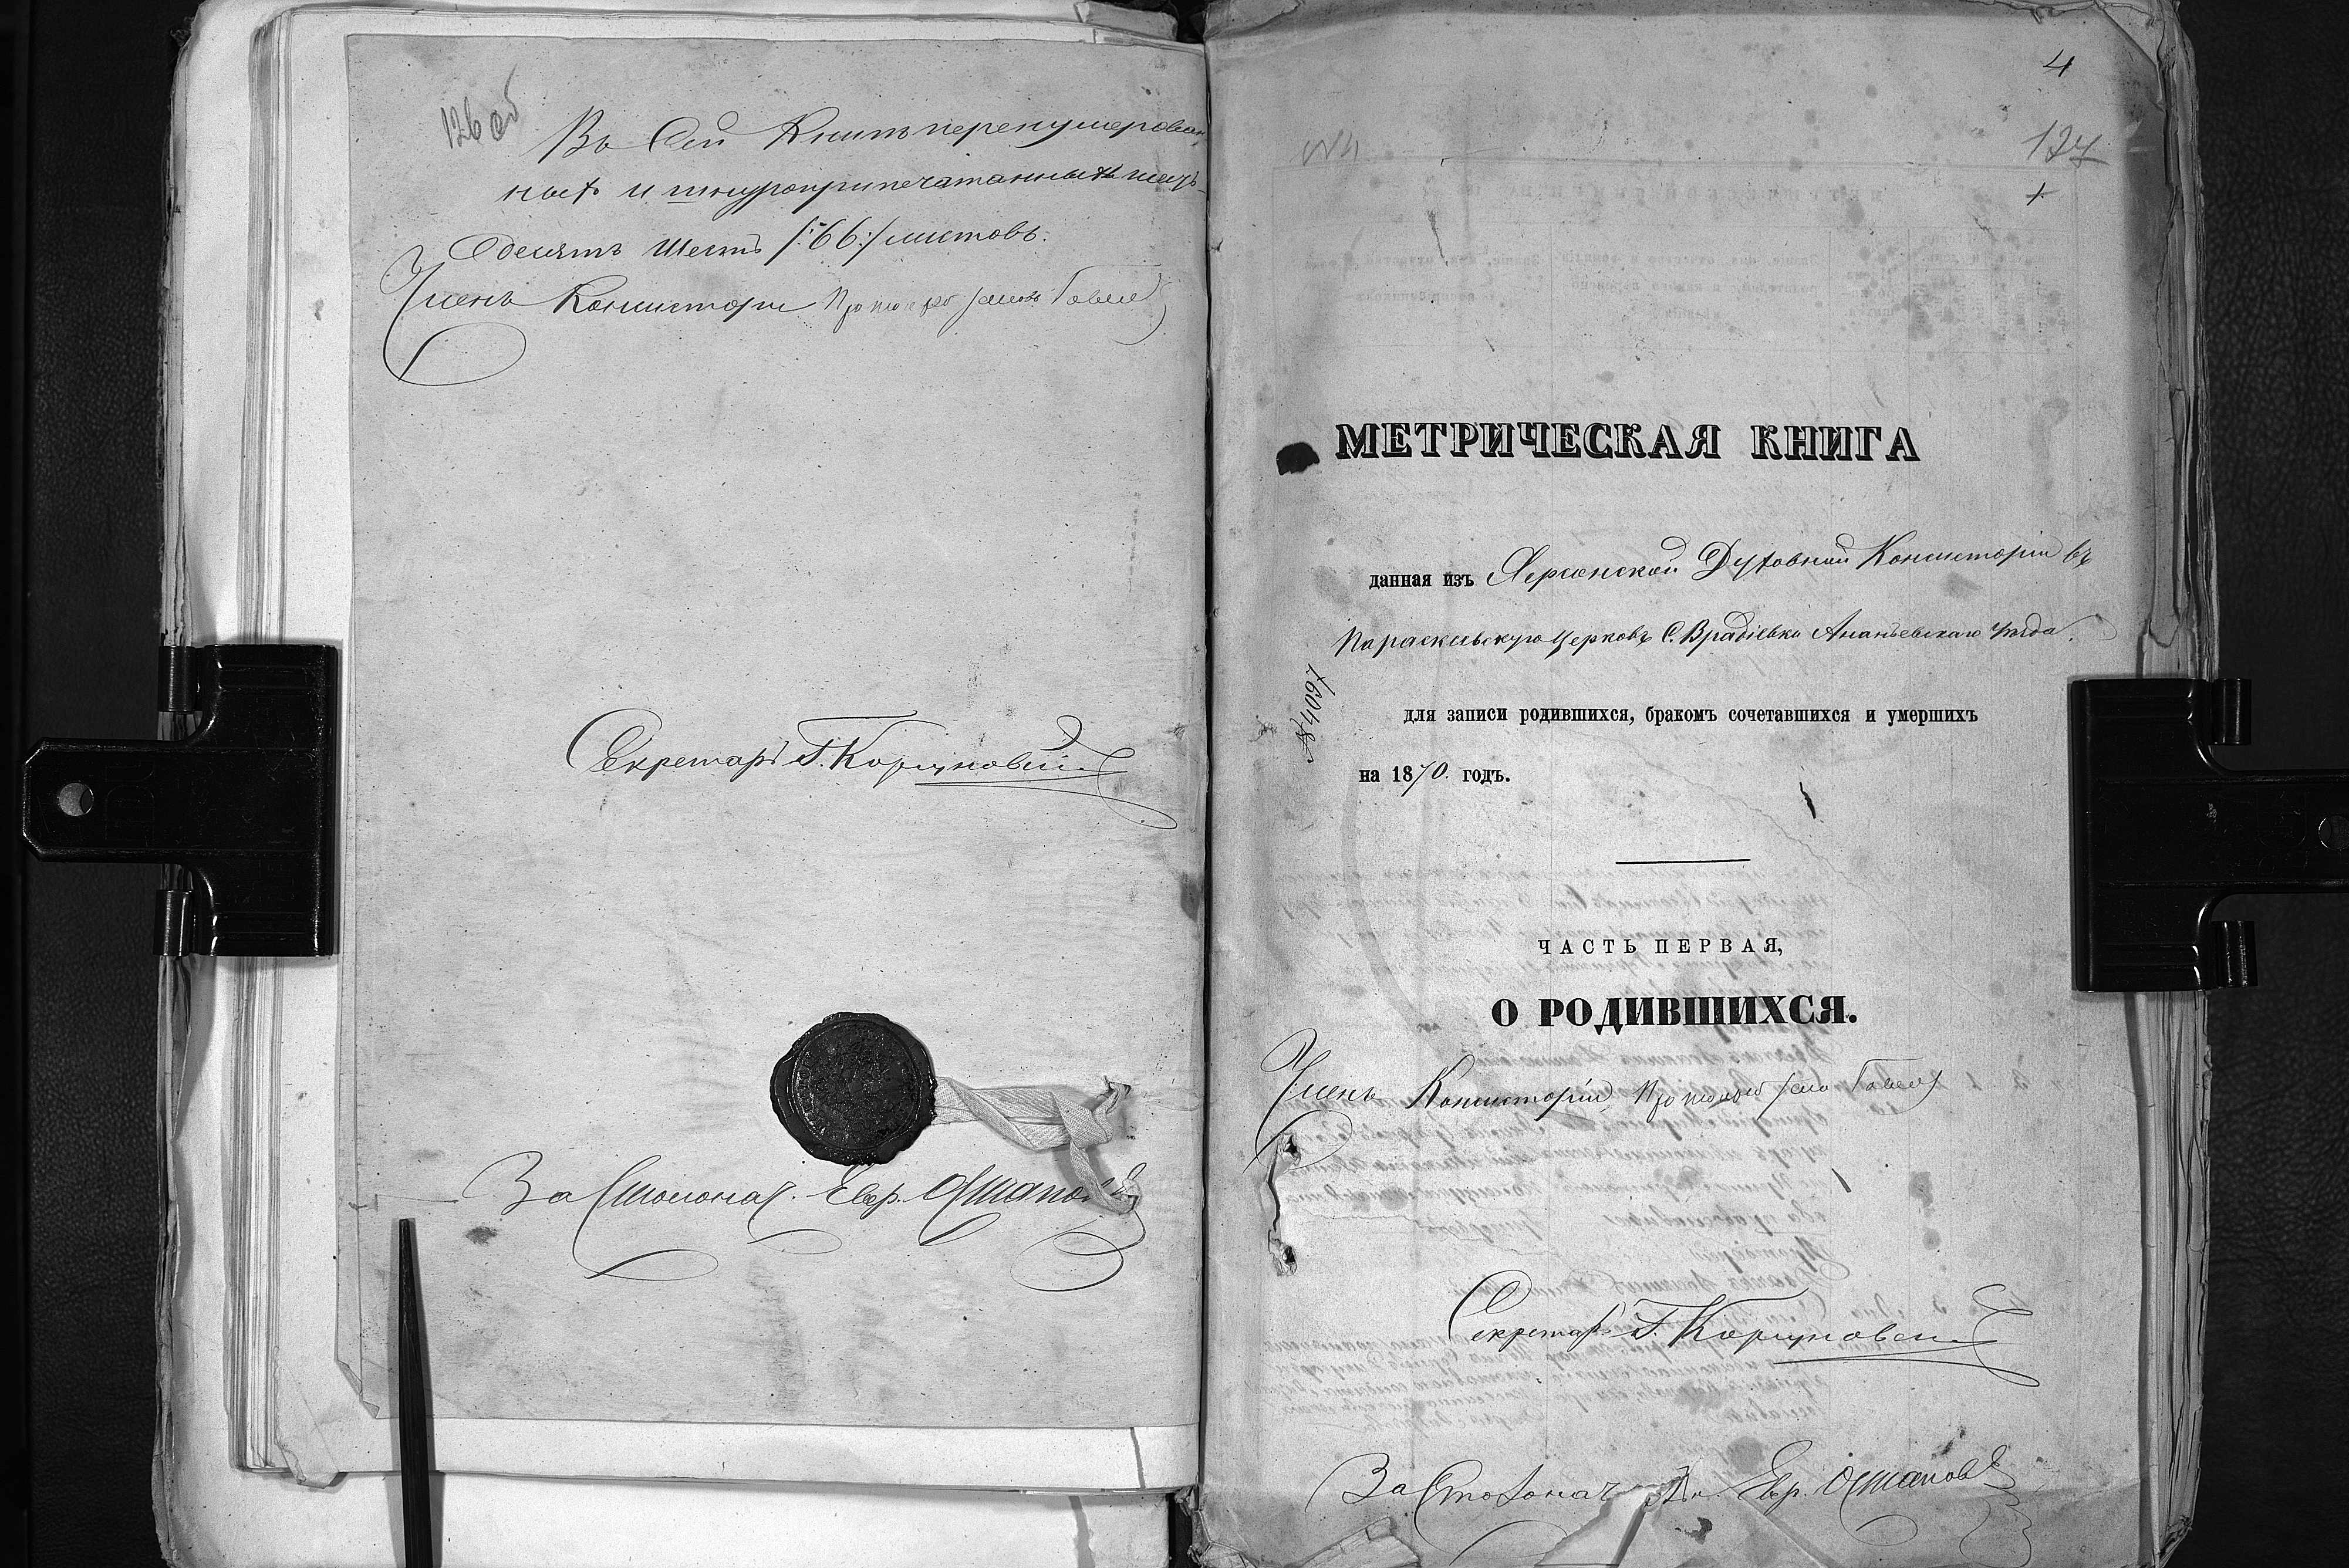 126 об
Въ Сей Книгѣ перенумерован
ныхъ и шнуроприпечатанныхъ шесть-
десятъ шесть /:66:/ листовъ.
Членъ Консисторіи Протоіерей
Секретарь Г. Корцуновскій
За Столонач. Евг. Остапов
4
127
№4
МЕТРИЧЕСКАЯ КНИГА
данная изъ Херсонской Духовной Консисторіи въ
Параскевьевскую церковь С. Врадіевки Ананьевскаго уѣзда.
№4097
для записи родившихся, бракомъ сочетавшихся и умершихъ
на 1870. годъ.
ЧАСТЬ ПЕРВАЯ,
О РОДИВШИХСЯ.
Членъ Консисторіи Протоіерей
Секретарь Г. Корцуновскій
За Столонач Евг. Остапов